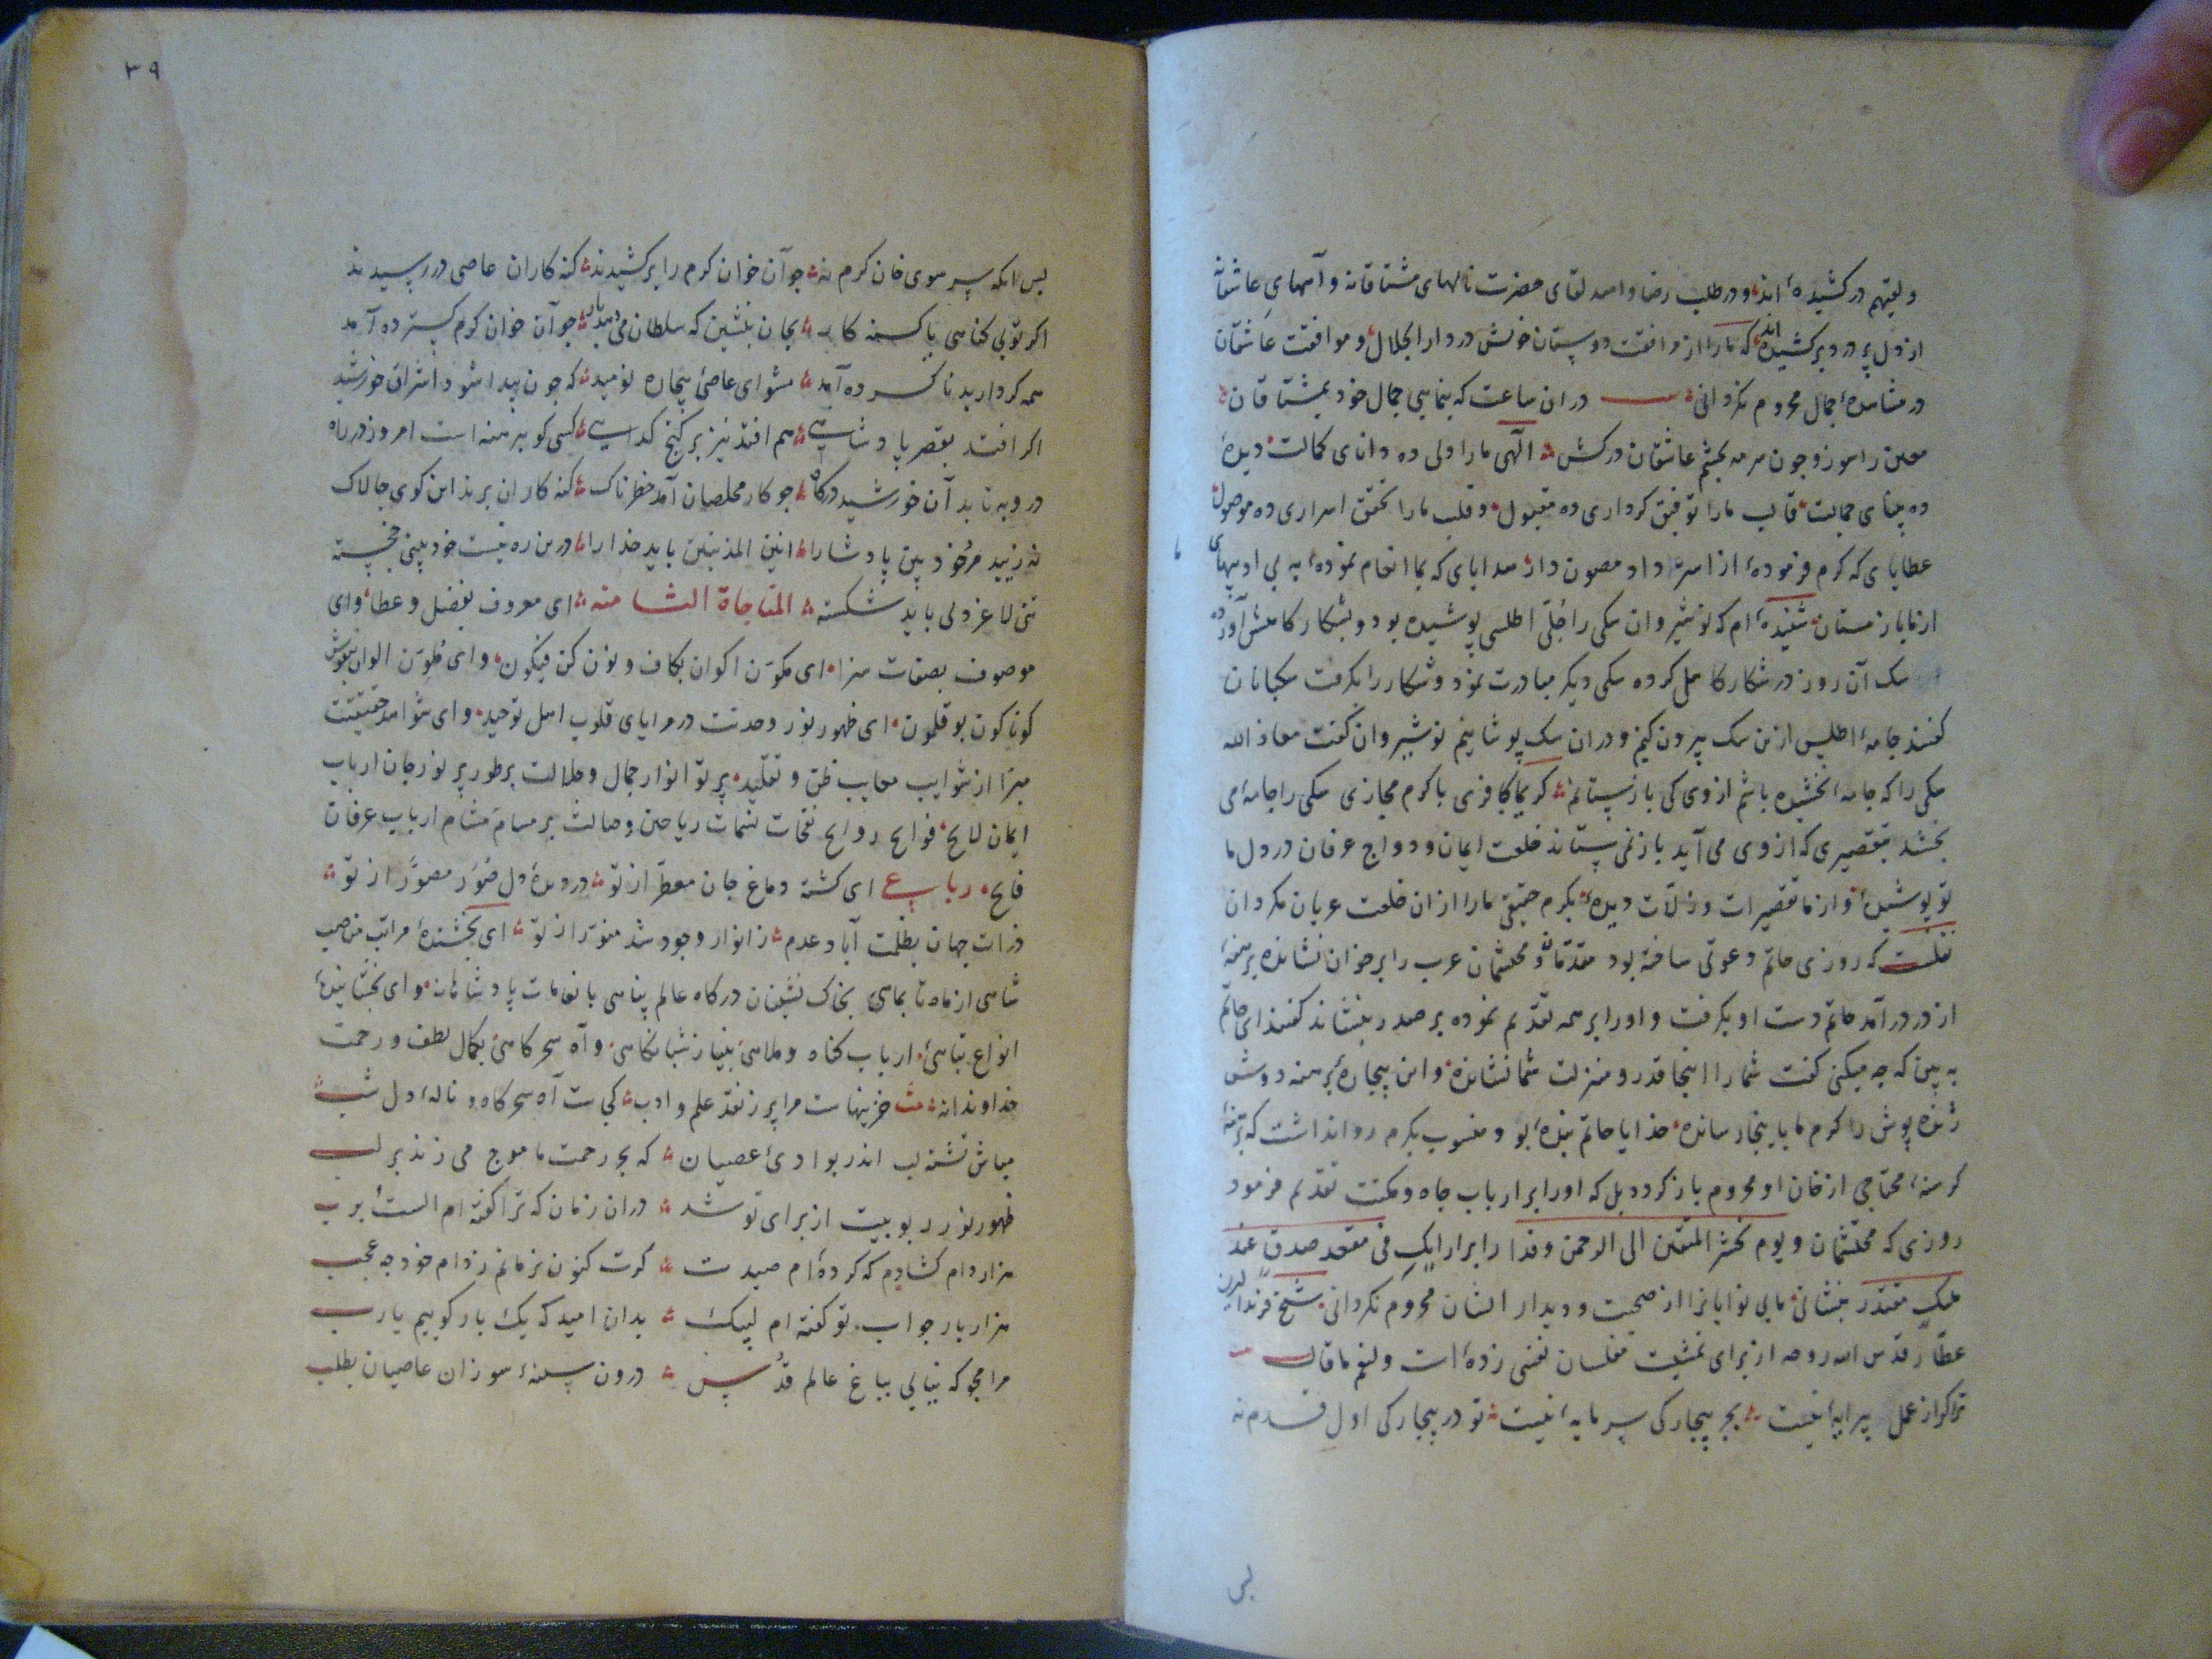 ولیتهم در کشیده اند و در طلب رضا و امید لقای حضرت نالهای مشتاقانه و آههای عاشقانه
از دل پر درد بر کشیده اند که ما را از مرافقت دوستان خویش در دار الجلال و موافقت عاشقان
در مشاهده جمال محروم نکردانی در ان ساعت که بنمایی جمال خود بمشتاقان
معین را سوز و چون سرمه بچشم عاشقان درکش الهی ما را دلی ده دانای کمالت دیده
ده بینای جمالت قالب ما را توفیق کرداری ده مقبول و قلب ما را تحقق اسراری ده موصول
عطایای که کرم فرموده از استرداد مصون دار هدایای که بما انعام نموده به بی ادبیهای
از ما باز مستان شنیده ام که نوشیروان سکی را جلی اطلس پوشیده بود و بشکار کاهش آورده
سک آن روز در شکار کاهلی کرده سکی دیکر مبادرت نمود و شکار را بکرفت سکبانان
کفتند جامه اطلس از تن سک بیرون کنیم و در ان سک پوشانیم نوشیروان کفت معاذ الله
سکی را که جامه بخشیده باشم از وی کی باز ستانم کریما کافری با کرم مجازی سکی را جامه می
بخشد بتقصیری که از وی می آید باز نمی ستاند خلعت ایمان و دواج عرفان در دل ما
تو پوشیده و از ما تقصیرات و زلات دیده بکرم حقیقی ما را از ان خلعت عریان مکردان
نقلست که روزی حاتم دعوتی ساخته بود مقدمان و محتشمان عرب را بر خوان نشانده برهنه
از در درآمد حاتم دست او بکرفت و او را بر همه تقدیم نموده بر صدر بنشاند کفتند ای حاتم
به بین که چه میکنی کفت شما را اینجا قدر و منزلت شما نشانده و این بیچاره برهنه دوش
ژنده پوش را کرم ما باینجا رسانده خدایا حاتم بنده بود منسوب بکرم روا نداشت که برهنه
کرسنه محتاجی از خان او محروم باز کردد بل که او را بر ارباب جاه و مکنت تقدیم فرمود
روزی که محتشمان و یوم نحشر المتقین الی الرحمن وفدا را بر ارایک فی مقعد صدق عند
ملیک مقتدر بنشانی ما بی نوایانرا از صحبت و دیدار ایشان محروم نکردانی شیخ فریدالدین
عطار قدس الله روحه از برای تمشیت مفلسان نفسی زده است ولنعم ما قال
ترا کر از عمل پیرایه نیست بجز بیچارکی سرمایه نیست تو در بیچارکی اول قدم نه
پس
٣٩
پس انکه سر سوی خان کرم نه چو آن خوان کرم را بر کشیدند کنه کاران عاصی در رسیدند
اکر تو بی کناهی یا کنه کار بجان بنشین که سلطان می دهد بار چو آن خوان کرم کسترده آمد
همه کردار بد ناکرده آمد مشو ای عاصی بیچاره نومید که چون پیدا شود اشراق خورشید
اکر افتد بقصر پادشاهی هم افتد نیز بر کنج کدایی کسی کو برهنه است امروز در راه
درو به تابد آن خورشید درکاه چو کار مخلصان آمد خطرناک کنه کاران برند این کوی چالاک
نه زیبید مر خود بین پادشا را انین المذنبین باید خدا را درین ره نیست خود بینی خجسته
تنی لاغر دلی باید شکسته المناجاة الثامنه ای معروف بفضل و عطا و ای
موصوف بصفات سزا ای مکون اکوان بکاف و نون کن فیکون و ای ملون الوان بنقوش
کوناکون بوقلمون ای ظهور نور وحدتت در مرایای قلوب اهل توحید و ای شواهد حقیقتت
مبرا از شوایب معایب ظن و تقلید پرتو انوار جمال و جلالت بر طور پر نور جان ارباب
ایمان لایح فوایح روایح نفحات نسمات ریاحین وصالت بر مسام مشام ارباب عرفان
فایح رباعی ای کشته دماغ جان معطر از تو در دیده دل صور مصور از تو
ذرات جهان بظلمت آباد عدم ز انوار وجود شد منور از تو ای بخشنده مراتب مناصب
شاهی از ماه تا بماهی بخاک نشینان درکاه عالم پناهی بانعامات پادشاهانه و ای بخشاینده
انواع تباهی ارباب کناه و ملاهی بنیاز شبانکاهی و آه سحرکاهی بکمال لطف و رحمت
خداوندانه خزینهاست مرا پر ز نقد علم و ادب کجاست آه سحرکاه و ناله دل شب
مباش تشنه لب اندر بوادی عصیان که بحر رحمت ما موج می زند بر لب
ظهور نور ربوبیت از برای تو شد در ان زمان که ترا کفته ام الست برب
هزار دام کشادم که کرده ام صیدت کرت کنون نرهانم ز دام خود چه عجب
هزار بار جواب تو کفته ام لبیک بدان امید که یک بار کوییم یارب
مرا مجو که نیابی بباغ عالم قدس درون سینه سوزان عاصیان بطلب